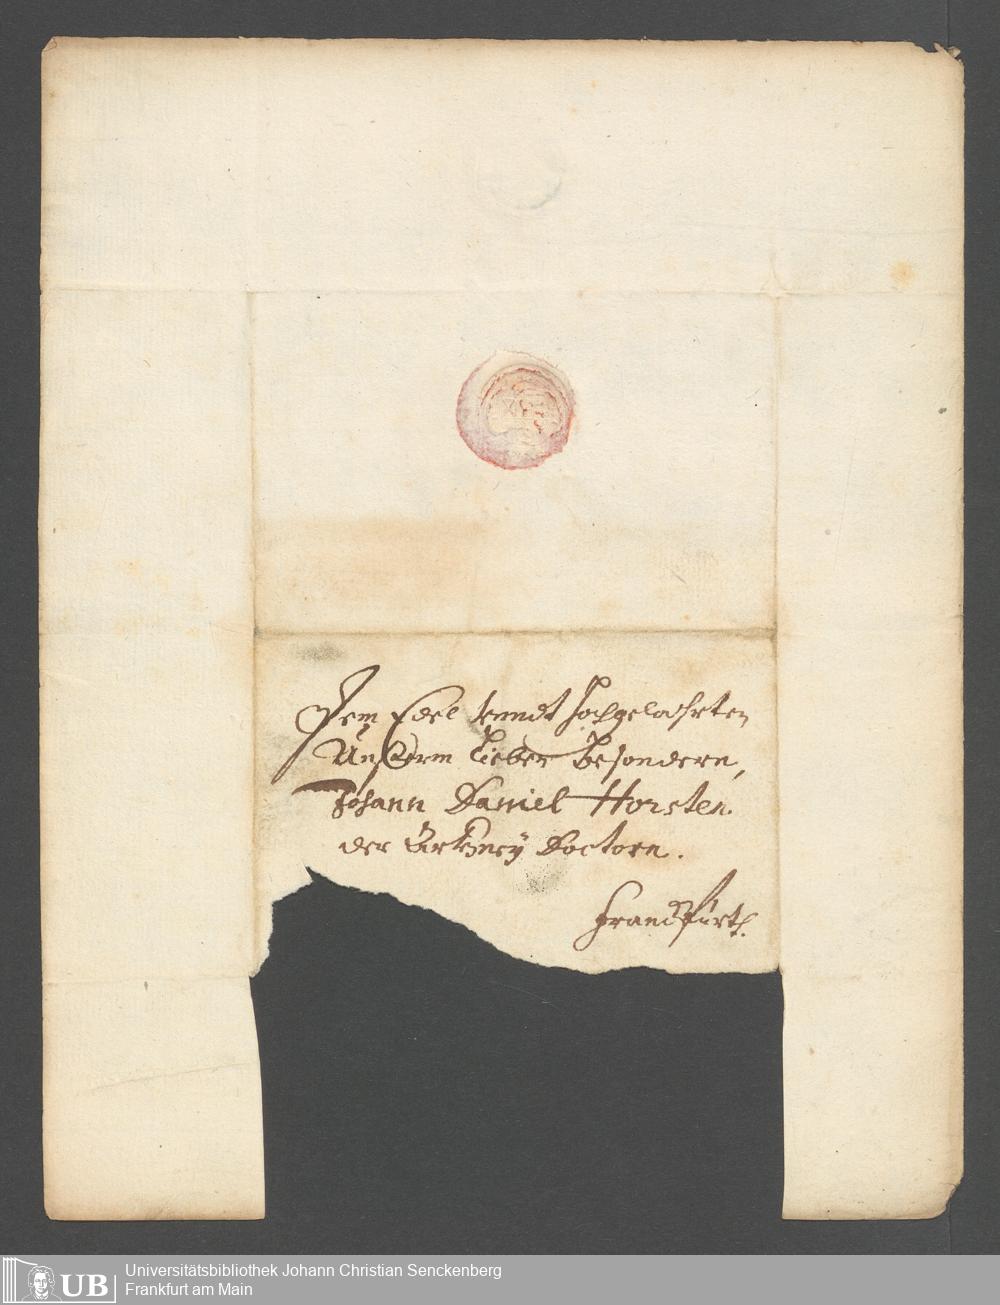 Dem Edel vnndt Hochgelahrten
Unßerm Lieben Besondern,
Johann Daniel Horsten
der Artzney Doctorn.
Franckfurth.
UB
Universitätsbibliothek Johann Christian Senckenberg
Frankfurt am Main